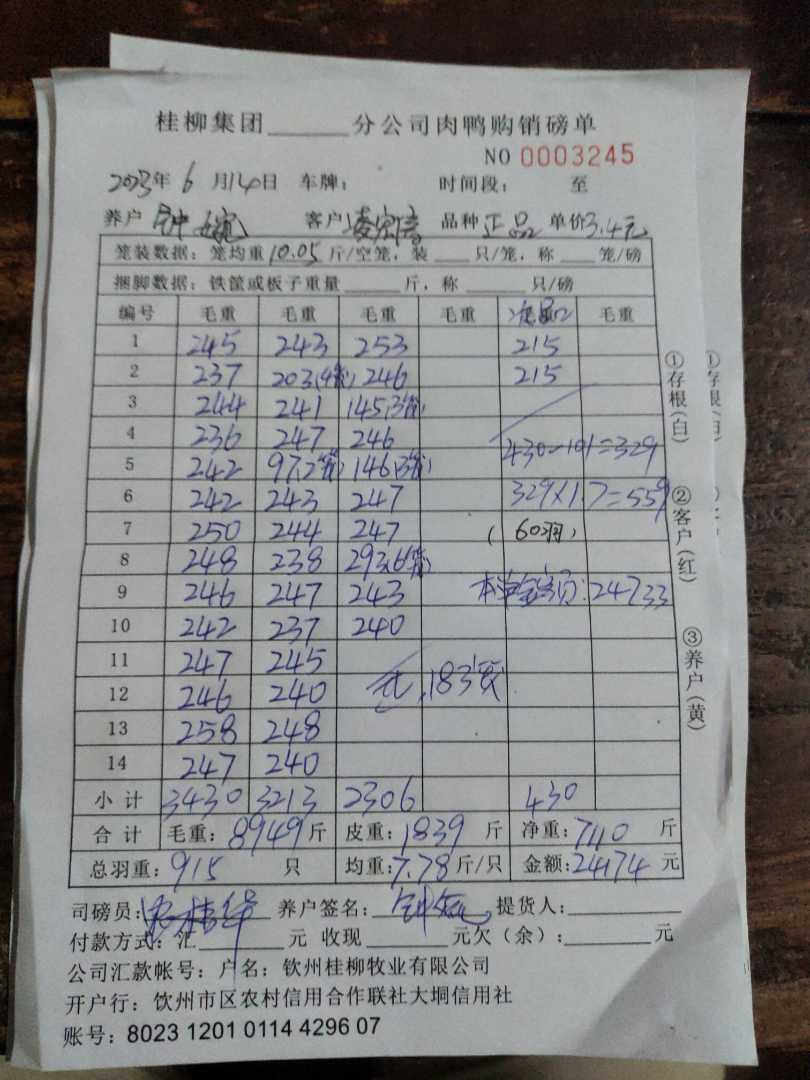 桂柳集团______分公司肉鸭购销磅单
NO 0003245
2023年 6 月14日 车牌: 时间段: 至
养户 钟 客户 凌 品种 正品 单价3.4元
笼装数据: 笼均重10.05斤/空笼, 装___只/笼, 称___笼/磅
捆脚数据: 铁筐或板子重量_____斤, 称_____只/磅
编号 毛重 毛重 毛重 毛重 毛重
1 245 243 253 215
2 237 203(4笼) 246 215
3 244 241 145(3笼)
4 236 247 246 430-101=329
5 242 97.2笼) 146(3笼)
6 242 243 247 329×1.7=559
7 250 244 247 (60羽)
8 248 238 293(6笼)
9 246 247 243 : 24733
10 242 237 240
11 247 245
12 246 240 183笼
13 258 248
14 247 240
小计 3430 3213 2306 430
合计 毛重: 8949 斤 皮重: 1839 斤 净重: 7110 斤
总羽重: 915 只 均重: 7.78 斤/只 金额: 24174 元
司磅员: 养户签名: 钟 提货人:
付款方式: 汇______元 收现______元欠(余):______元
公司汇款帐号: 户名: 钦州桂柳牧业有限公司
开户行: 饮州市区农村信用合作联社大垌信用社
账号: 8023 1201 0114 4296 07
①存根(白) ②客户(红) ③养户(黄)